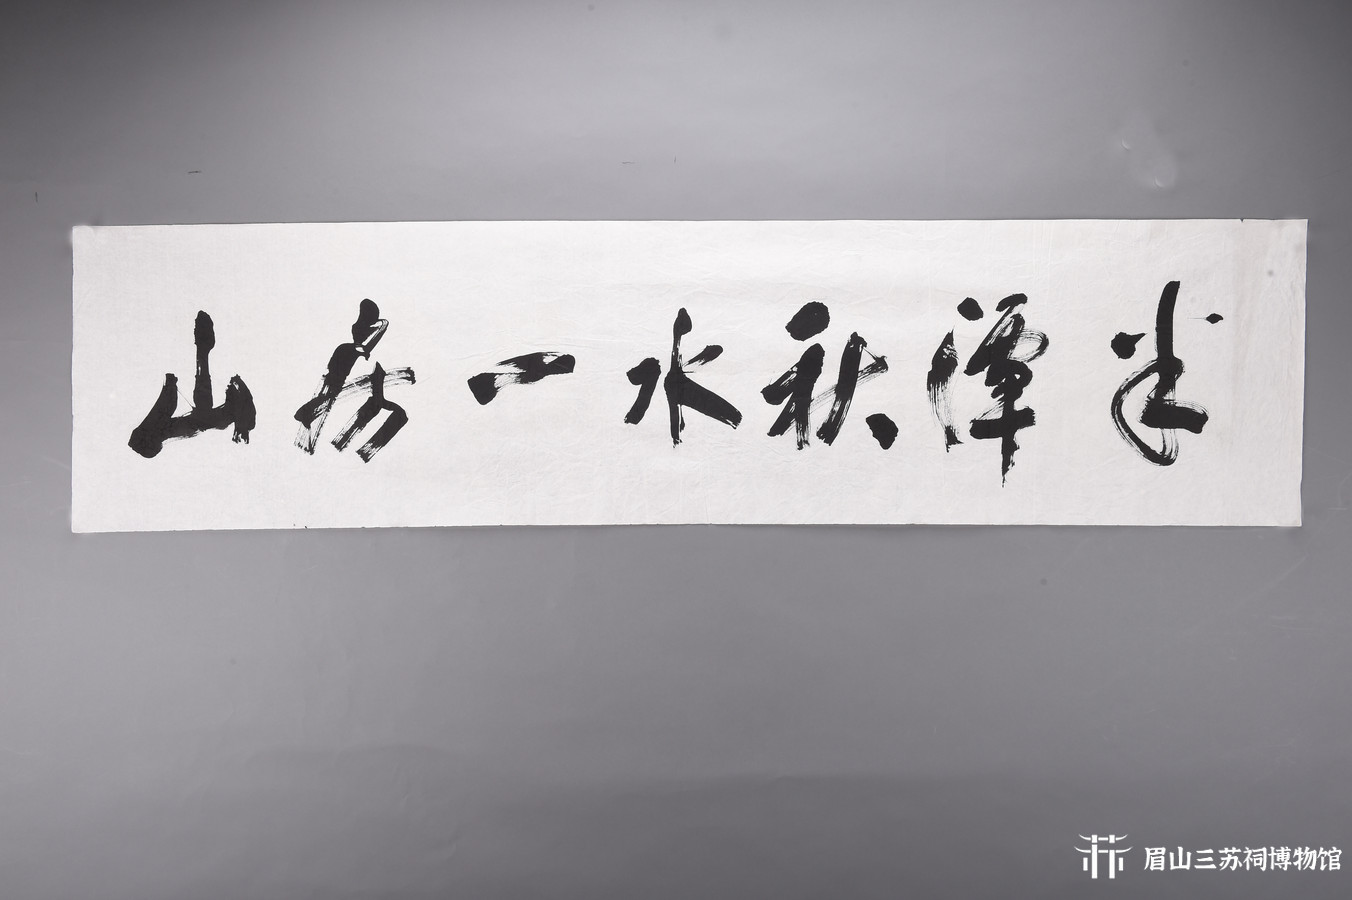 半潭秋水一房山
眉山三苏祠博物馆